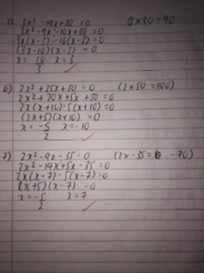 3x² - 19x + 30 = 0 (3 x 30 = 90
3x² - 9x - 10x + 30 = 0
3x(x-3) - 10(x-3) = 0
(3x-10)(x-3) = 0
x = 10 x = 3
3
6) 2x² + 25x + 50 = 0 (2 x 50 = 100)
2x² + 20x + 5x + 50 = 0
2x(x+10) + 5(x+10) = 0
(2x+5)(x+10) = 0
x = -5 x = -10
2
7) 2x² - 9x - 35 = 0 (2x - 35 = -70)
2x² - 14x + 5x - 35 = 0
2x(x-7) + 5(x-7) = 0
(2x+5)(x-7) = 0
x = -5 x = 7
2